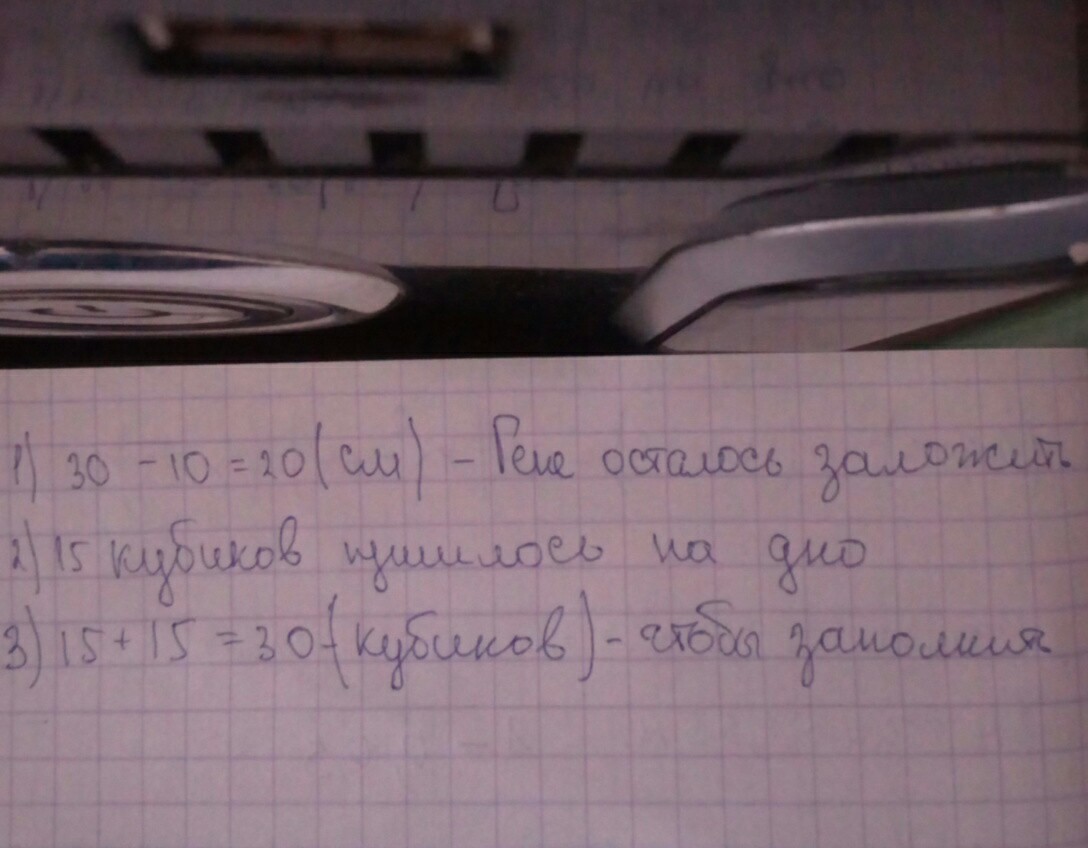 на дно
1) 30 - 10 = 20 (см) - Гене осталось заложить
2) 15 кубиков пришлось на дно
3) 15 + 15 = 30 (кубиков) - чтобы заполнить